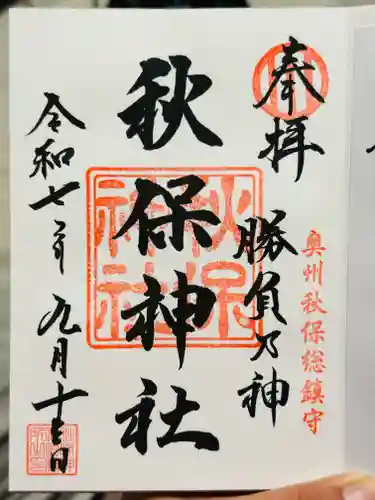 奉拝
勝負乃神
奥州秋保総鎮守
秋保神社
秋保
神社
令和七年九月十三日